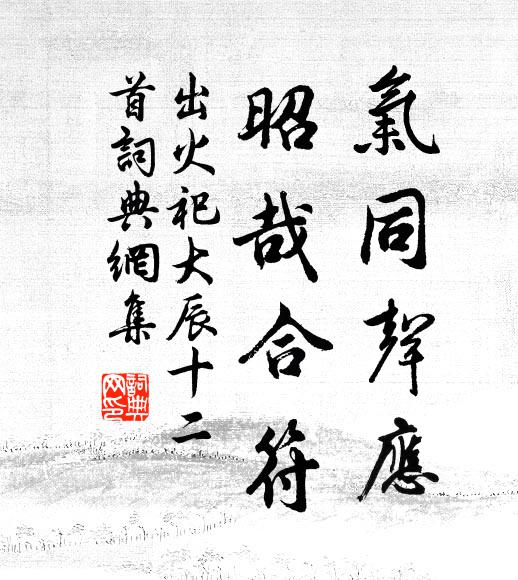 氣同聲應
昭哉合符
出火祀大辰十二
首詞典網集
詞典網印